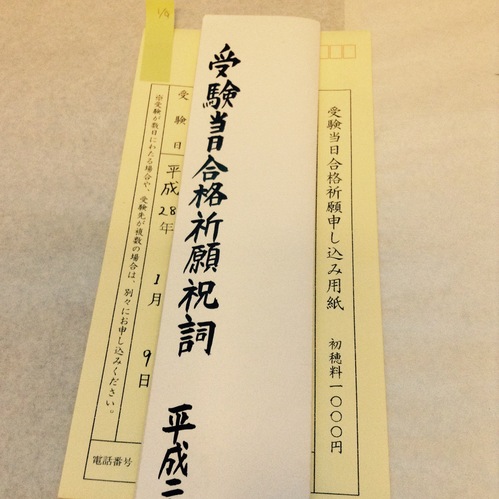 受験当日合格祈願申し込み用紙 初穂料一〇〇〇円
受験当日合格祈願祝詞 平成二
受験日 平成28年 1月 9日
※受験が数日にわたる場合や、受験先が複数の場合は、別々にお申し込みください。
電話番号
1/9